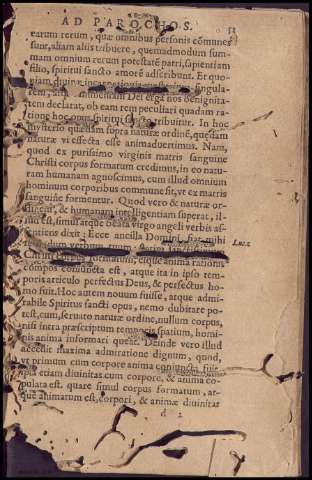 AD PAROCHOS. 53
earum rerum, quæ omnibus personis cõmunes
sunt, aliam alijs tribuere, quemadmodum sum-
mam omnium rerum potestatẽ patri, sapientiam
filio, spiritui sancto amorẽ adscribunt. Et quo-
niam diuinæ singula-
rem, Dei erga nos benignita-
tem declarat, ob eam rem peculiari quadam ra-
tione hoc opus spiritui tribuitur. In hoc
mysterio quædam supra naturæ ordinẽ, quædam
naturæ vi effecta esse animaduertimus. Nam,
quod ex purissimo virginis matris sanguine
Christi corpus formatum credimus, in eo natu-
ram humanam agnoscimus, cum illud omnium
hominum corporibus commune sit, vt ex matris
sanguine formentur. Quod vero & naturæ or-
& humanam intelligentiam superat, il-
lud est, simul atque beata virgo angeli verbis as-
sentiens dixit: Ecce ancilla Domini, fiat mihi
secundum verbum tuum, Luc. 1
Christi corpus formatum, eique anima rationis
compos coniuncta est, atque ita in ipso tem-
poris articulo perfectus Deus, & perfectus ho-
mo fuit. Hoc autem nouum fuisse, atque admi-
rabile Spiritus sancti opus, nemo dubitare po-
test, cum, seruato naturæ ordine, nullum corpus,
nisi intra præscriptum temporis spatium, homi-
nis anima informari queat. Deinde vero illud
accedit maxima admiratione dignum, quod,
vt primum cum corpore anima coniuncta fuit,
ipsa etiam diuinitas cum corpore, & anima co-
pulata est. quare simul corpus formatum, at-
que animatum est, corpori, & animæ diuinitas
d 2